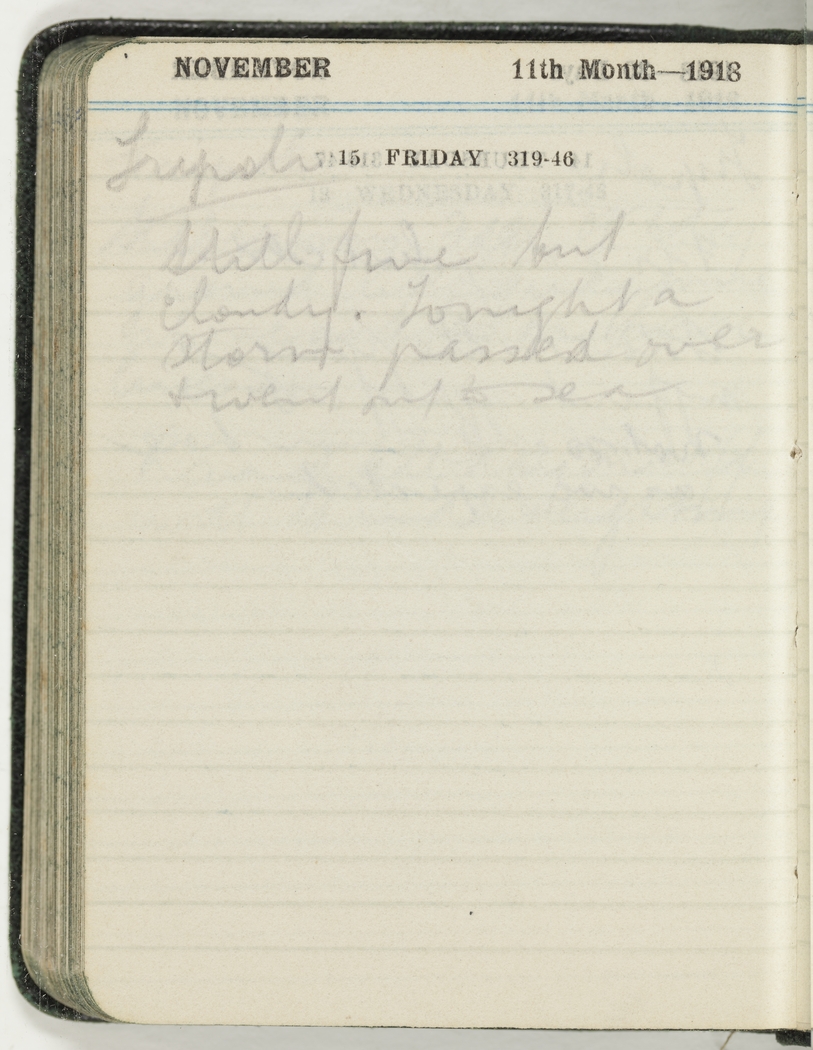 NOVEMBER 11th Month—1918
15 FRIDAY 319-46
Tripoli
Still fine but
cloudy. Tonight a
storm passed over
& went out to sea